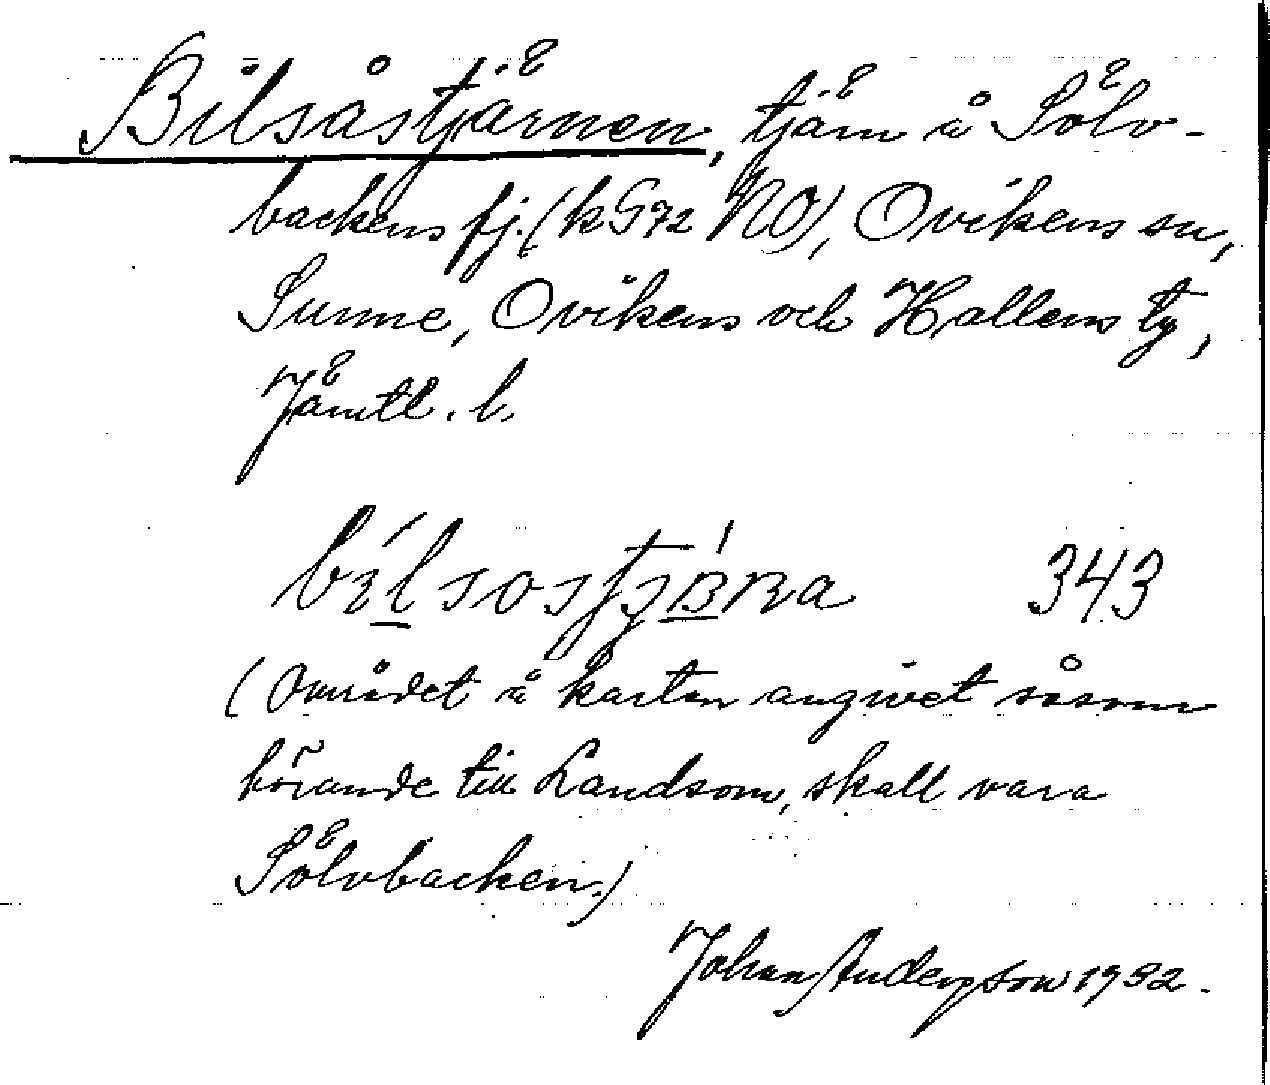 Bilsåstjärnen, tjärn å Sölv-
backens fj. (k G72 NO), Ovikens sn,
Sunne, Ovikens och Hallens tg,
Jämtl. l.
343
(Området å kartan angivet såsom
hörande till Landsom, skall vara
Sölvbacken.)
Johan Anderson 1932.